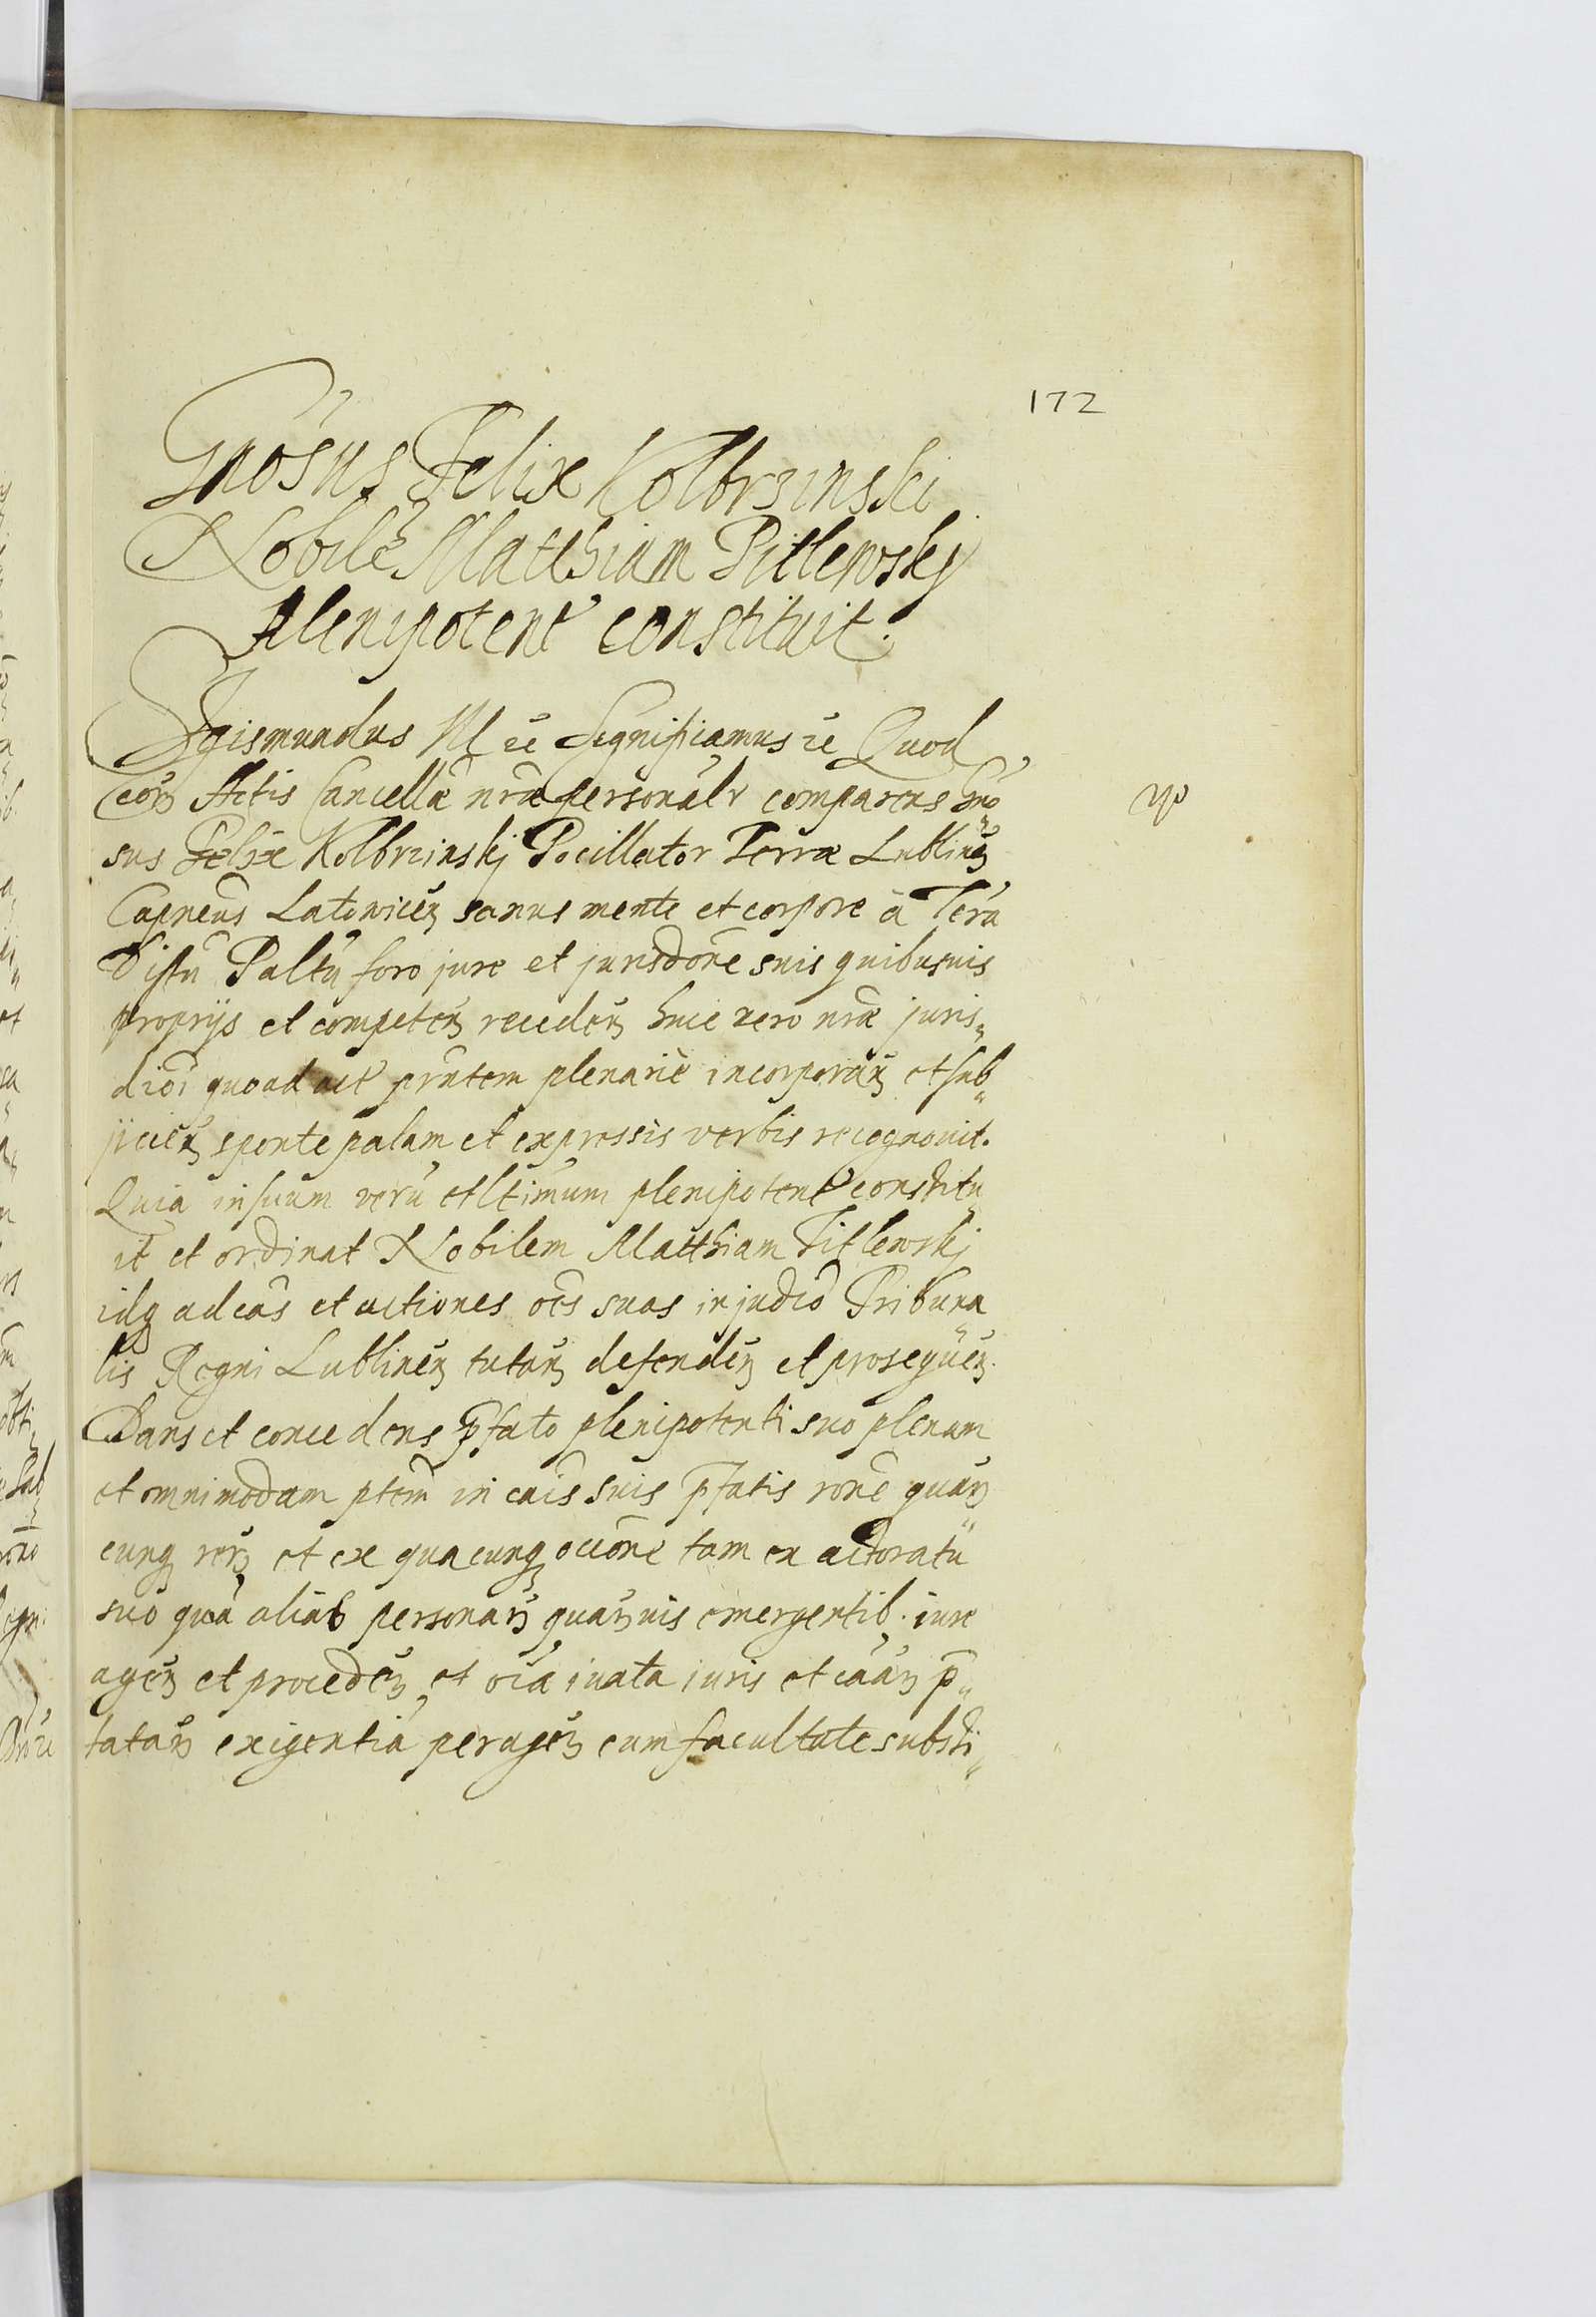 172
Gnosus Felix Kolbrzinski
Nobilē Matthiam Pitlewskj
Plenipotent constituit.
Sigismundus III etc Significamus etc Quod
corā Actis Cancellæ nræ personalr comparens Gno„
sus Felix Kolbrzinskj Pocillator Terræ Lublineñ
Capneus Latowiceñ sanus mente et corpore à Terra
Distu Paltu foro jure et jurisdone suis quibusuis
proprijs et competeñ recedeñ huic vero nræ juris„
dioi quoad act prntem plenarie incorporañ et sub„
jicieñ sponte palam et expressis verbis recognouit.
Quia in suum verū et ltimum plenipotent constitu„
it et ordinat Nobilem Matthiam Pitlewskj
idq ad cās et actiones oēs suas in judicō Tribuna„
lis Regni Lublineñ tutañ defendeñ et prosequeñ.
Dans et concedens p̄fato plenipotenti suo plenam
et omnimodam ptem̄ in cāis suis p̄fatis rōne quarū„
cunq rerū et ex quacunq occōne tam ex actoratu
suo quā aliāb personarū quarūuis emergentib. iure
ageñ et procedeñ et oīa iuxta iuris et cāarū p̄„
tatarū exigentiā perageñ cum facultate substi„